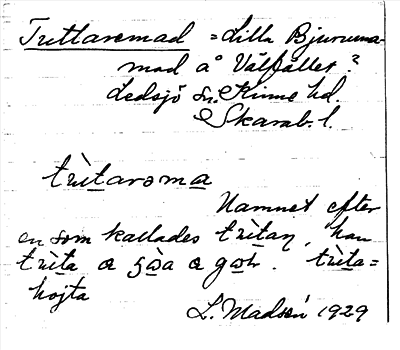 Trittaremad = Lilla Bjurumamad å Vålfället?
Ledsjö sn. Kinne hd.
Skarab. l.
trìtarəma
Namnet efter
en som kallades trìtan, han
trìta å gòa å
trìta=
hojta
L. Madsén 1929